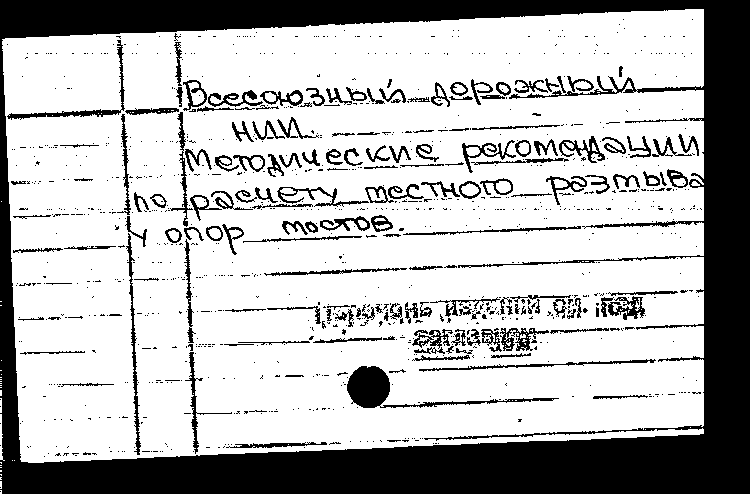 Всесоюзный дорожный
НИИ.
Методические рекомендации
по расчету местного размыва
у опор мостов.
Перечень изданий см. под
заглавием